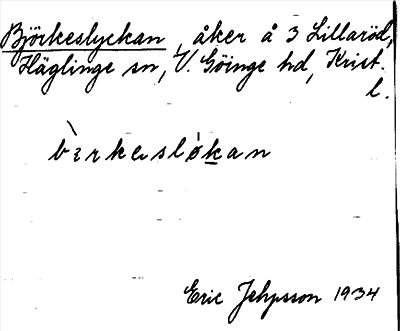 Björkeslyckan, åker å 3 Lillaröd,
Häglinge sn, V. Göinge hd, Krist.
l.
bèrkesløkan
Eric Jehpsson 1934